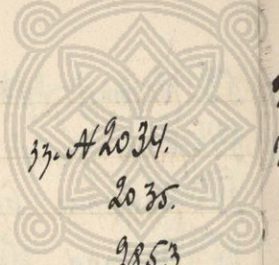 33. № 2034.
2035.
2853